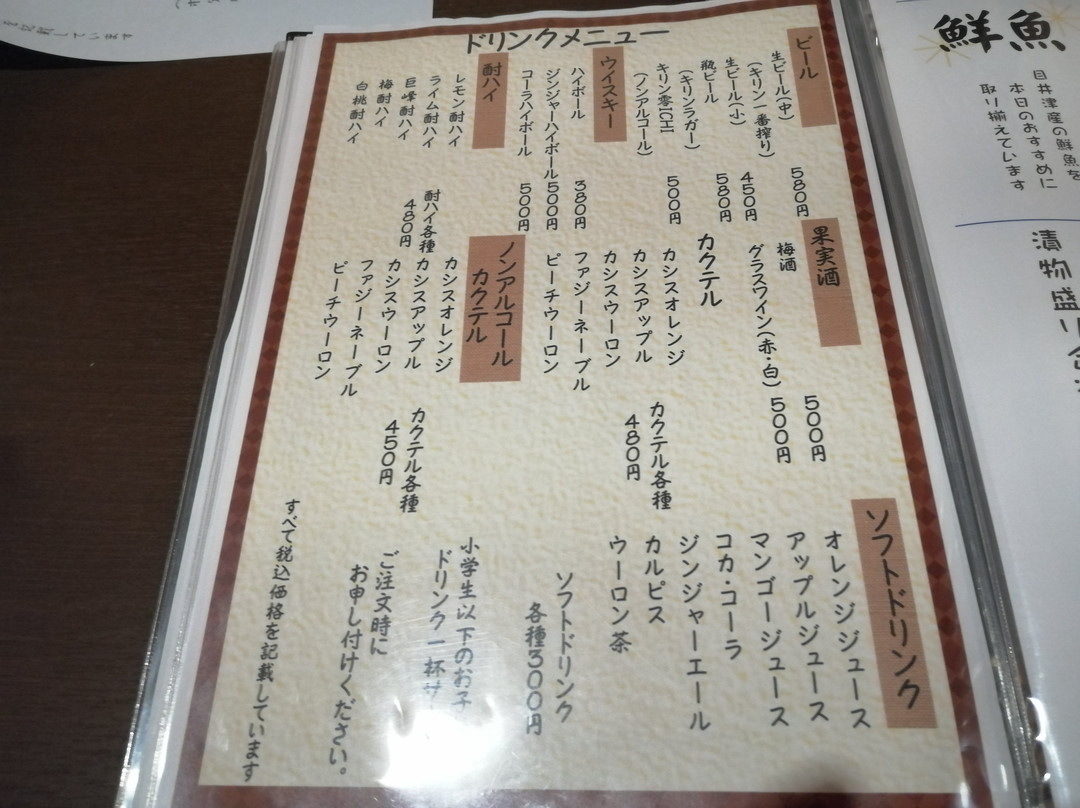 ドリンクメニュー
ビール
生ビール(中)
(キリン一番搾り)
580円
生ビール(小)
450円
瓶ビール
(キリンラガー)
580円
キリン零ICHI
(ノンアルコール)
500円
ウイスキー
ハイボール
380円
ジンジャーハイボール
500円
コーラハイボール
500円
酎ハイ
レモン酎ハイ
ライム酎ハイ
巨峰酎ハイ
梅酎ハイ
白桃酎ハイ
酎ハイ各種
480円
果実酒
梅酒
500円
グラスワイン(赤・白)
500円
カクテル
カシスオレンジ
カシスアップル
カシスウーロン
ファジーネーブル
ピーチウーロン
カクテル各種
480円
ノンアルコール
カクテル
カシスオレンジ
カシスアップル
カシスウーロン
ファジーネーブル
ピーチウーロン
カクテル各種
450円
ソフトドリンク
オレンジジュース
アップルジュース
マンゴージュース
コカ・コーラ
ジンジャーエール
カルピス
ウーロン茶
ソフトドリンク
各種300円
小学生以下のお子
ドリンク一杯サ
ご注文時に
お申し付けください。
すべて税込価格を記載しています
鮮魚
目井津産の鮮魚を
本日のおすすめに
取り揃えています
漬物盛り合